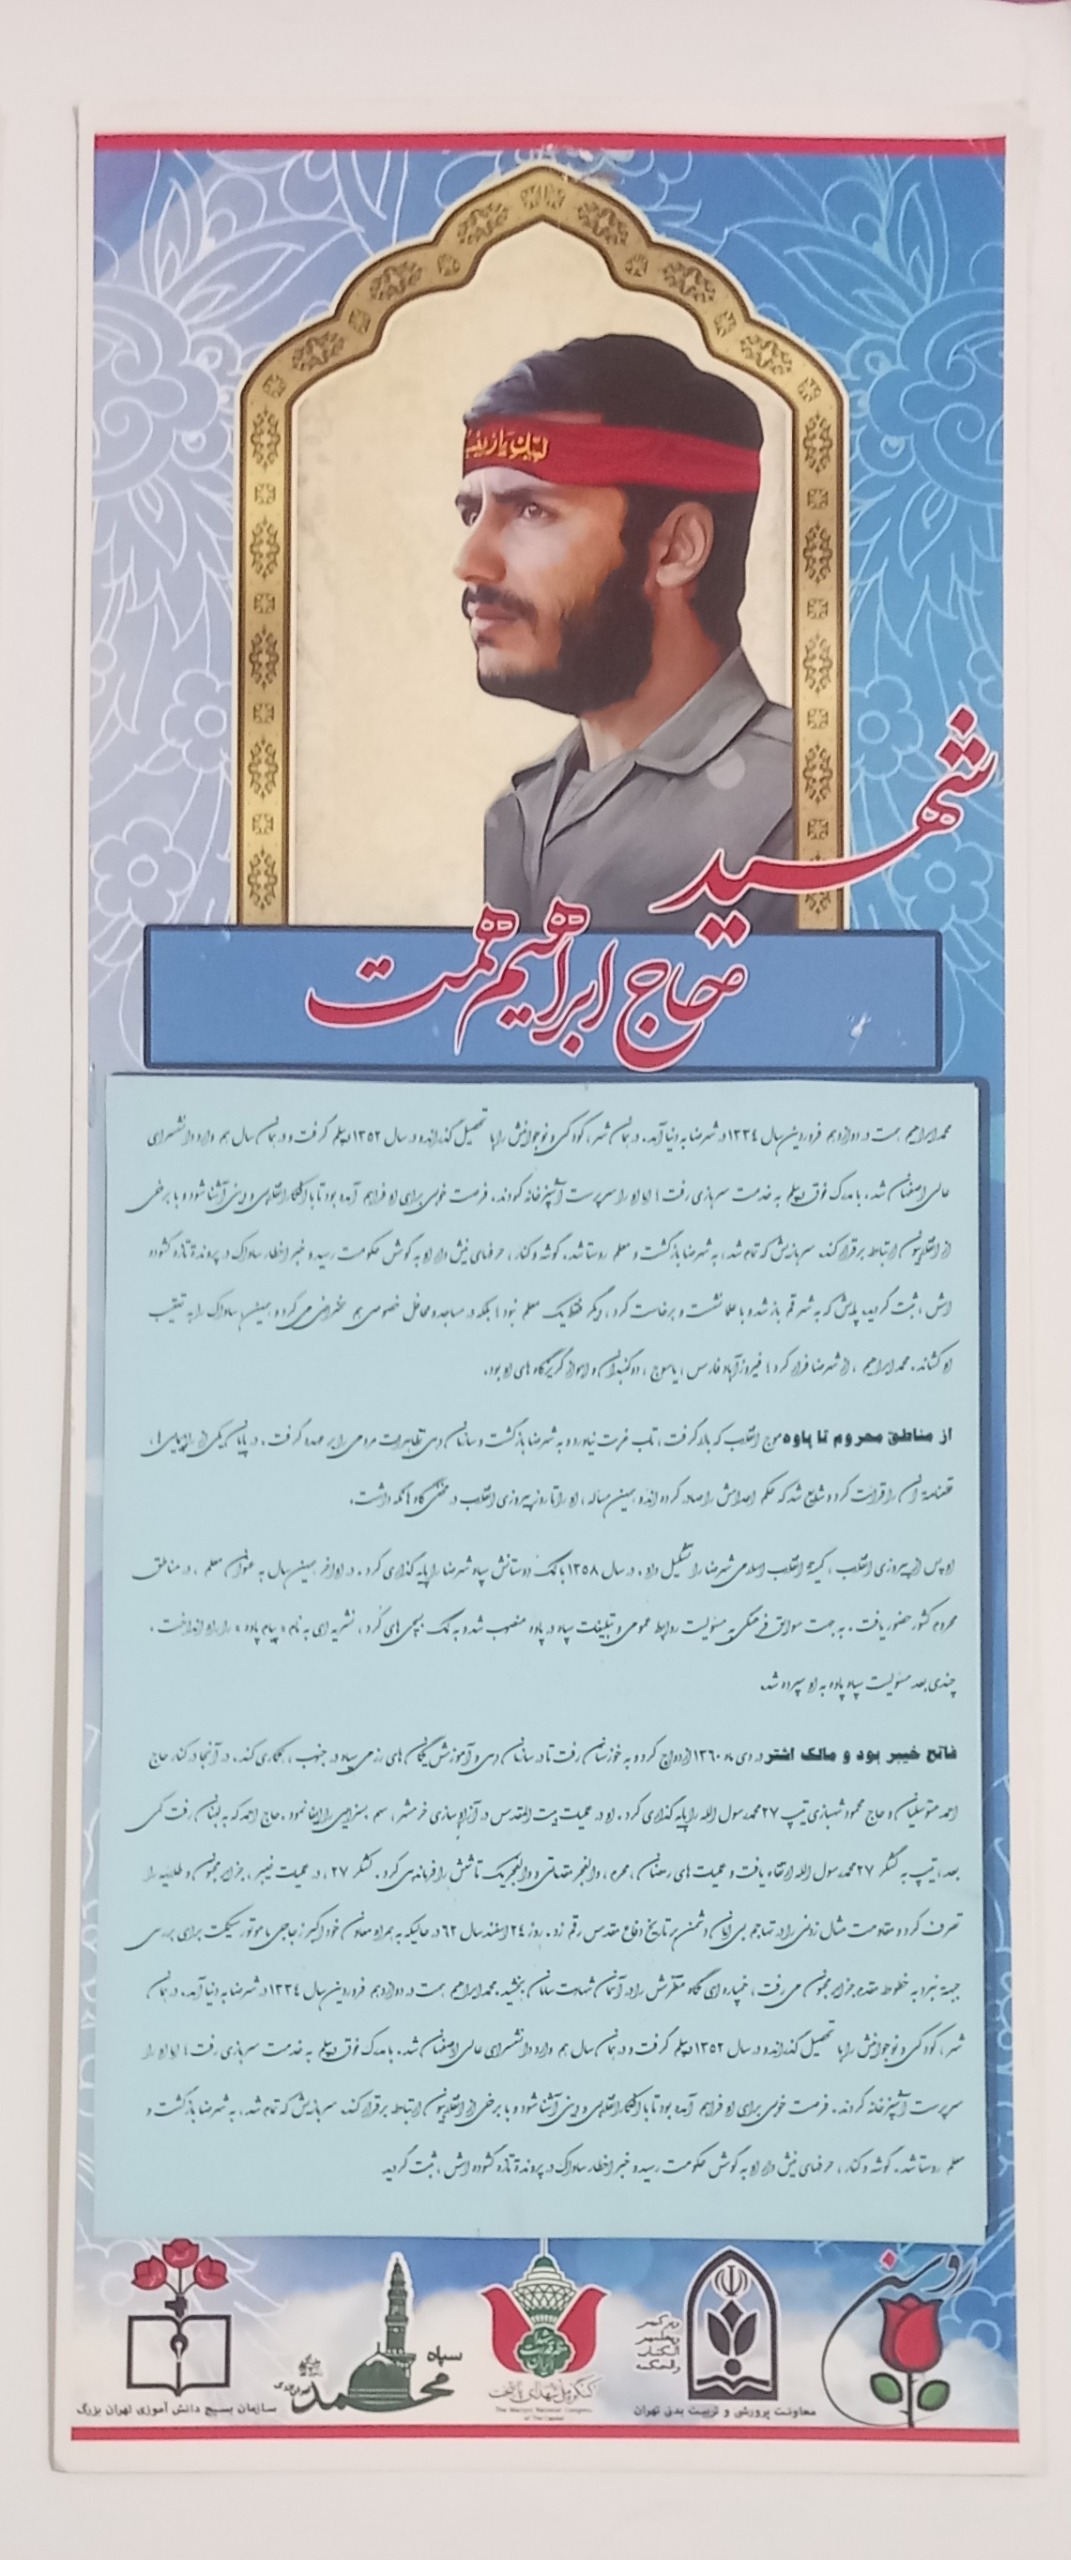 شهید
حاج ابراهیم همت
محمدابراهیم همت در دوازدهم فروردین سال ۱۳۳٤ در شهرضا به دنیا آمد. در همان شهر، کودکی و نوجوانی‌اش را با تحصیل گذراند و در سال ۱۳۵۲ دیپلم گرفت و در همان سال هم وارد دانشسرای
عالی اصفهان شد. با مدرک فوق دیپلم به خدمت سربازی رفت؛ اما او را سرپرست آشپزخانه کردند. فرصت خوبی برای او فراهم آمده بود تا با افکار انقلابی و دینی آشنا شود و با برخی
از انقلابیون ارتباط برقرار کند. سربازی‌اش که تمام شد، به شهرضا بازگشت و معلم روستا شد. گوشه و کنار، حرفهای نیش دار او به گوش حکومت رسید و خبر اخطار ساواک در پروندهٔ تازه گشوده
اش، ثبت گردید. پایش که به شهر قم باز شد و با علما نشست و برخاست کرد، دیگر فقط یک معلم نبود؛ بلکه در مساجد و محافل خصوصی هم سخنرانی می کرد و همین، ساواک را به تعقیب
او کشاند. محمدابراهیم، از شهرضا فرار کرد؛ فیروزآباد فارس، یاسوج، دوگنبدان و اهواز گریزگاه های او بود.
از مناطق محروم تا پاوه موج انقلاب که بالا گرفت، تاب غربت نیاورد و به شهرضا بازگشت و سازمان دهی تظاهرات مردمی را بر عهده گرفت. در پایان یکی از راهپیمایی ها،
قطعنامهٔ آن را قرائت کرد و شایع شد که حکم اعدامش را صادر کرده اند و همین مسأله، او را تا روز پیروزی انقلاب در مخفی گاه ها نگه داشت.
او پس از پیروزی انقلاب، کمیتهٔ انقلاب اسلامی شهرضا را تشکیل داد. در سال ۱۳۵۸ با کمک دوستانش سپاه شهرضا را پایه گذاری کرد. در اواخر همین سال به عنوان معلم، در مناطق
محروم کشور حضور یافت. به جهت سوابق فرهنگی به مسئولیت روابط عمومی و تبلیغات سپاه در پاوه منصوب شد و به کمک بسیجی های کُرد، نشریه ای به نام «پیام پاوه» را راه انداخت.
چندی بعد مسئولیت سپاه پاوه به او سپرده شد.
فاتح خیبر بود و مالک اشتر در دی ماه ۱۳٦۰ ازدواج کرد و به خوزستان رفت تا در سازمان دهی و آموزش یگان های رزمی سپاه در جنوب، همکاری کند. در آنجا در کنار حاج
احمد متوسلیان و حاج محمود شهبازی تیپ ۲۷ محمد رسول الله را پایه گذاری کرد. او در عملیات بیت المقدس در آزادسازی خرمشهر، سهم بسزایی را ایفا نمود. حاج احمد که به لبنان رفت کمی
بعد، تیپ به لشگر ۲۷ محمد رسول الله ارتقاء یافت و عملیات های رمضان، محرم، والفجر مقدماتی و والفجر یک تا شش را فرماندهی کرد. لشگر ۲۷، در عملیات خیبر، جزایر مجنون و طلائیه را
تصرف کرد و مقاومت مثال زدنی را در تهاجم بی امان دشمن بر تاریخ دفاع مقدس رقم زد. روز ۲٤ اسفند سال ٦۲ در حالیکه به همراه معاون خود اکبر زجاجی با موتورسیکلت برای بررسی
جبهه نبرد به خطوط مقدم جزایر مجنون می رفت، خمپاره ای نگاه منتظرش را در آسمان شهادت سامان بخشید. محمدابراهیم همت در دوازدهم فروردین سال ۱۳۳٤ در شهرضا به دنیا آمد. در همان
شهر، کودکی و نوجوانی‌اش را با تحصیل گذراند و در سال ۱۳۵۲ دیپلم گرفت و در همان سال هم وارد دانشسرای عالی اصفهان شد. با مدرک فوق دیپلم به خدمت سربازی رفت؛ اما او را
سرپرست آشپزخانه کردند. فرصت خوبی برای او فراهم آمده بود تا با افکار انقلابی و دینی آشنا شود و با برخی از انقلابیون ارتباط برقرار کند. سربازی‌اش که تمام شد، به شهرضا بازگشت و
معلم روستا شد. گوشه و کنار، حرفهای نیش دار او به گوش حکومت رسید و خبر اخطار ساواک در پروندهٔ تازه گشوده اش، ثبت گردید
معاونت پرورشی و تربیت بدنی تهران
کنگره ملی شهدای پایتخت
The Martyrs National Congress
of The Capital
سپاه
محمد
سازمان بسیج دانش آموزی تهران بزرگ